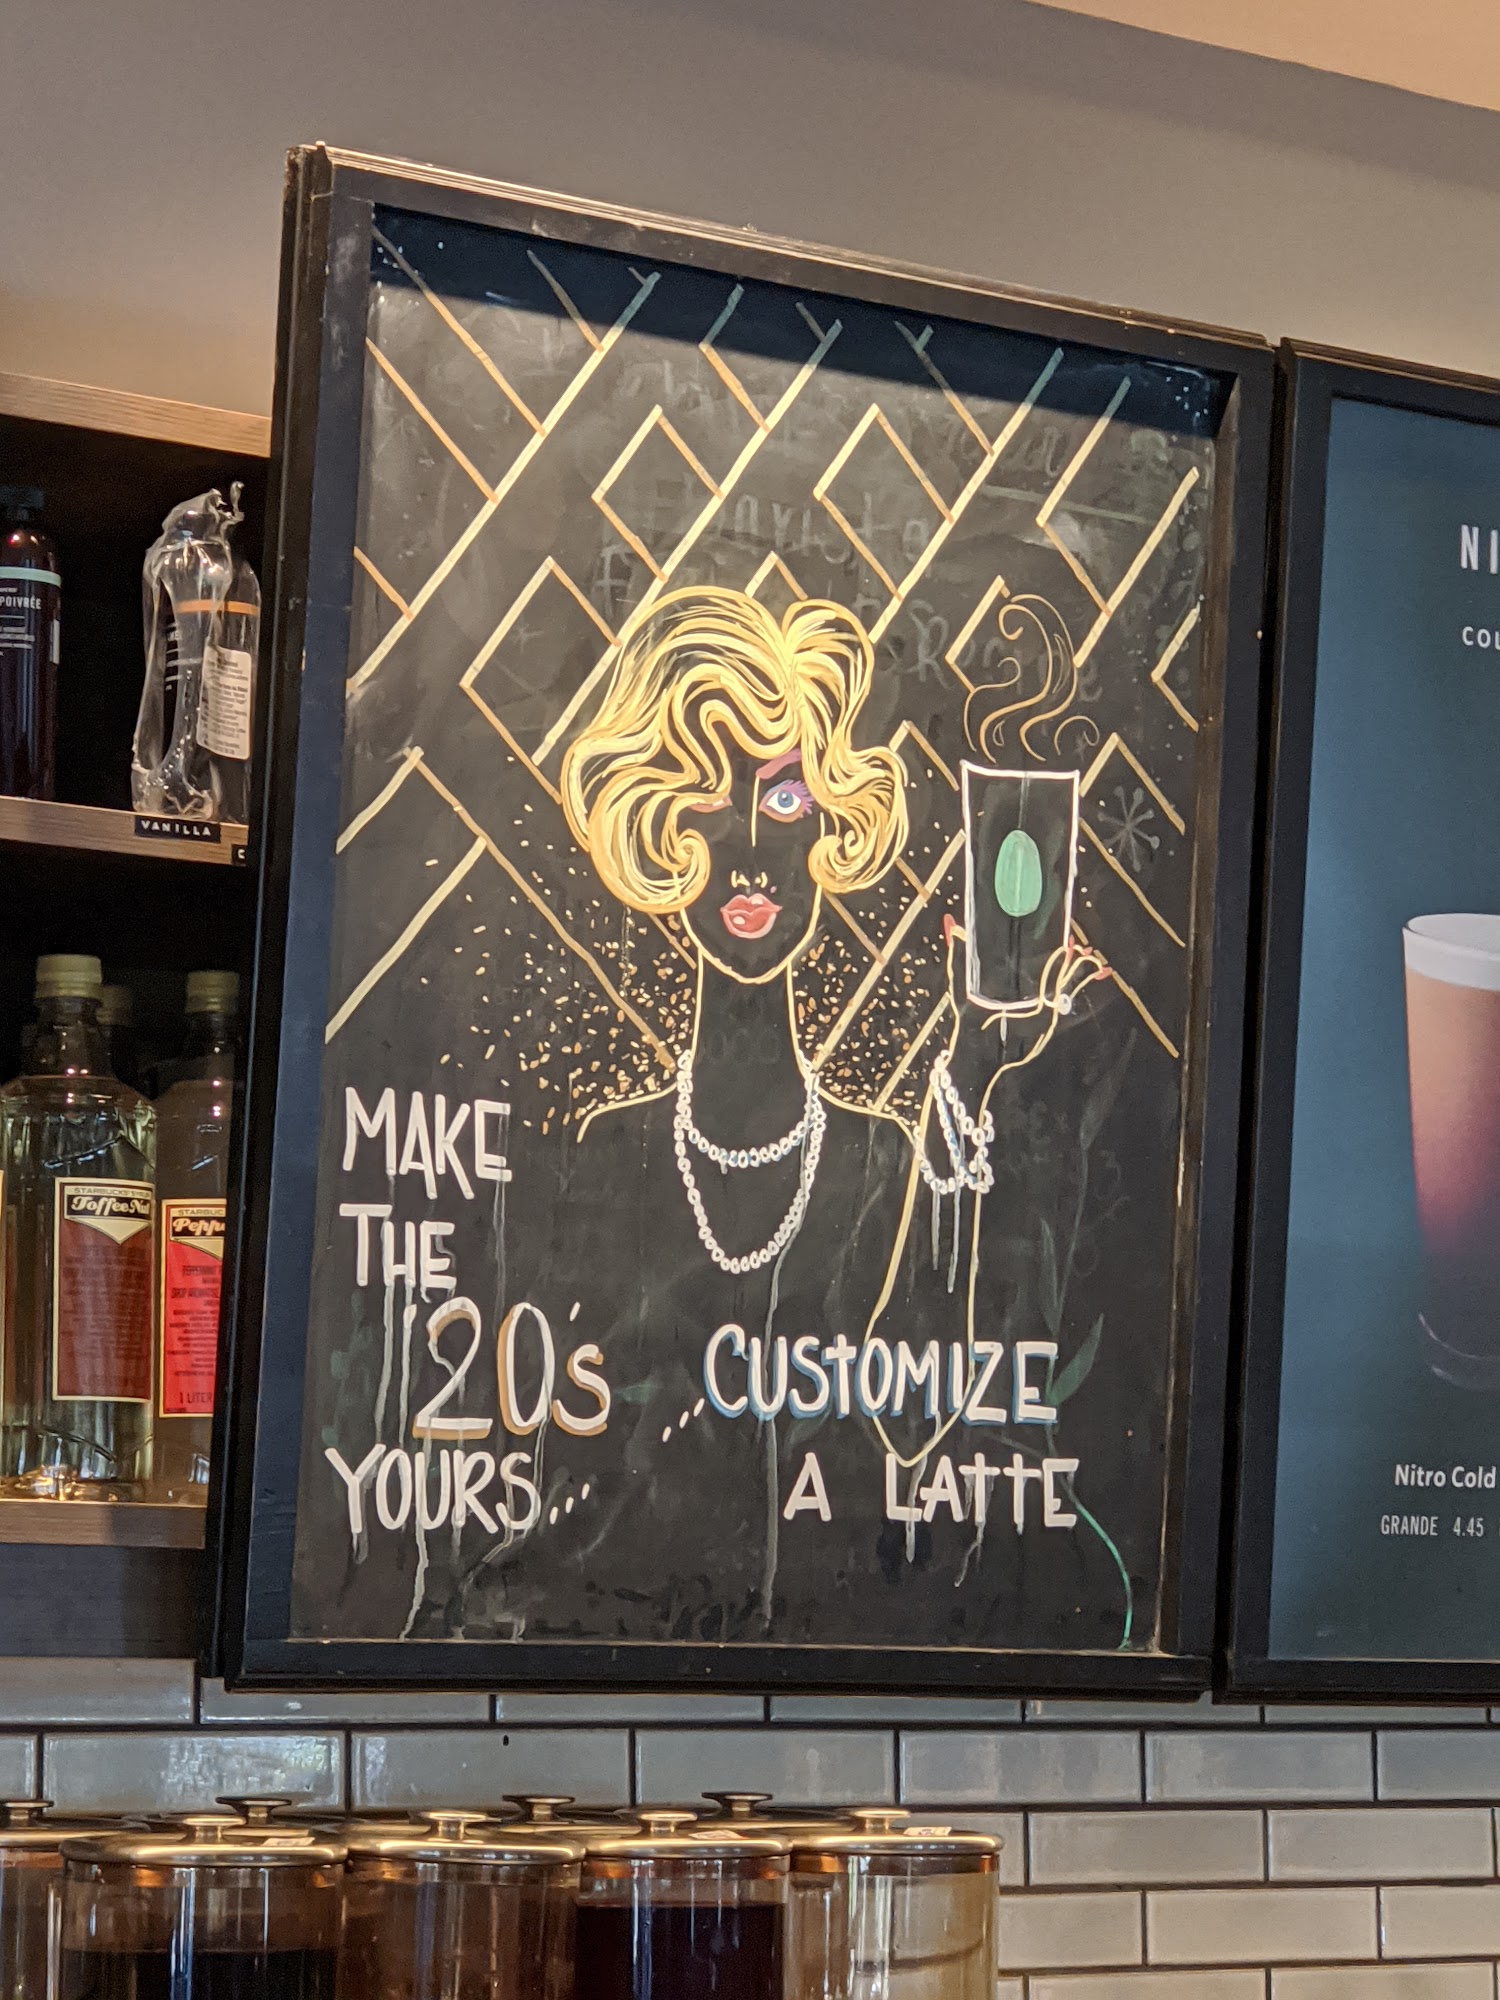 MAKE
THE
'20's
YOURS...
...CUSTOMIZE
A LATTE
POIVRÉE
VANILLA
STARBUCKS SYRUP
Toffee Nut
STARBUC
Pepp
1 LITER
NI
COL
Nitro Cold
GRANDE 4.45